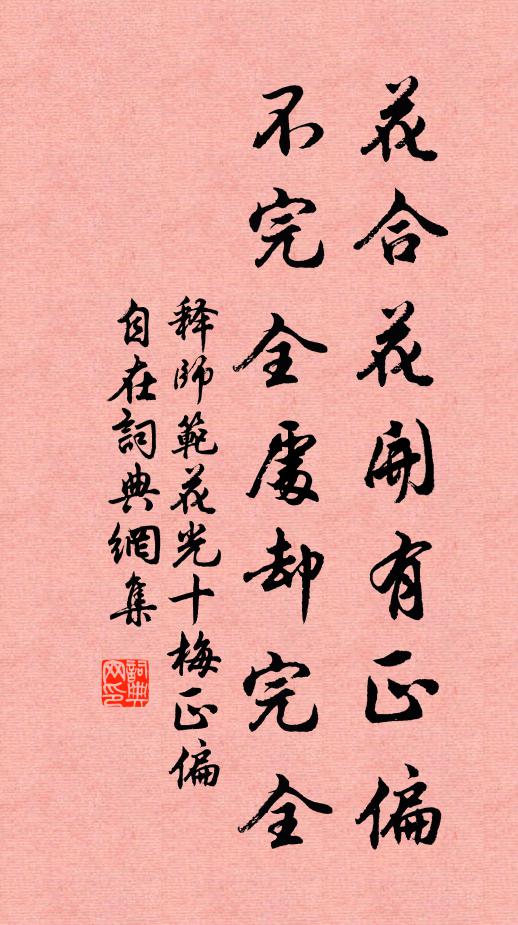 花合花開有正偏
不完全處却完全
释師範花光十梅正偏
自在詞典網集
詞典網印